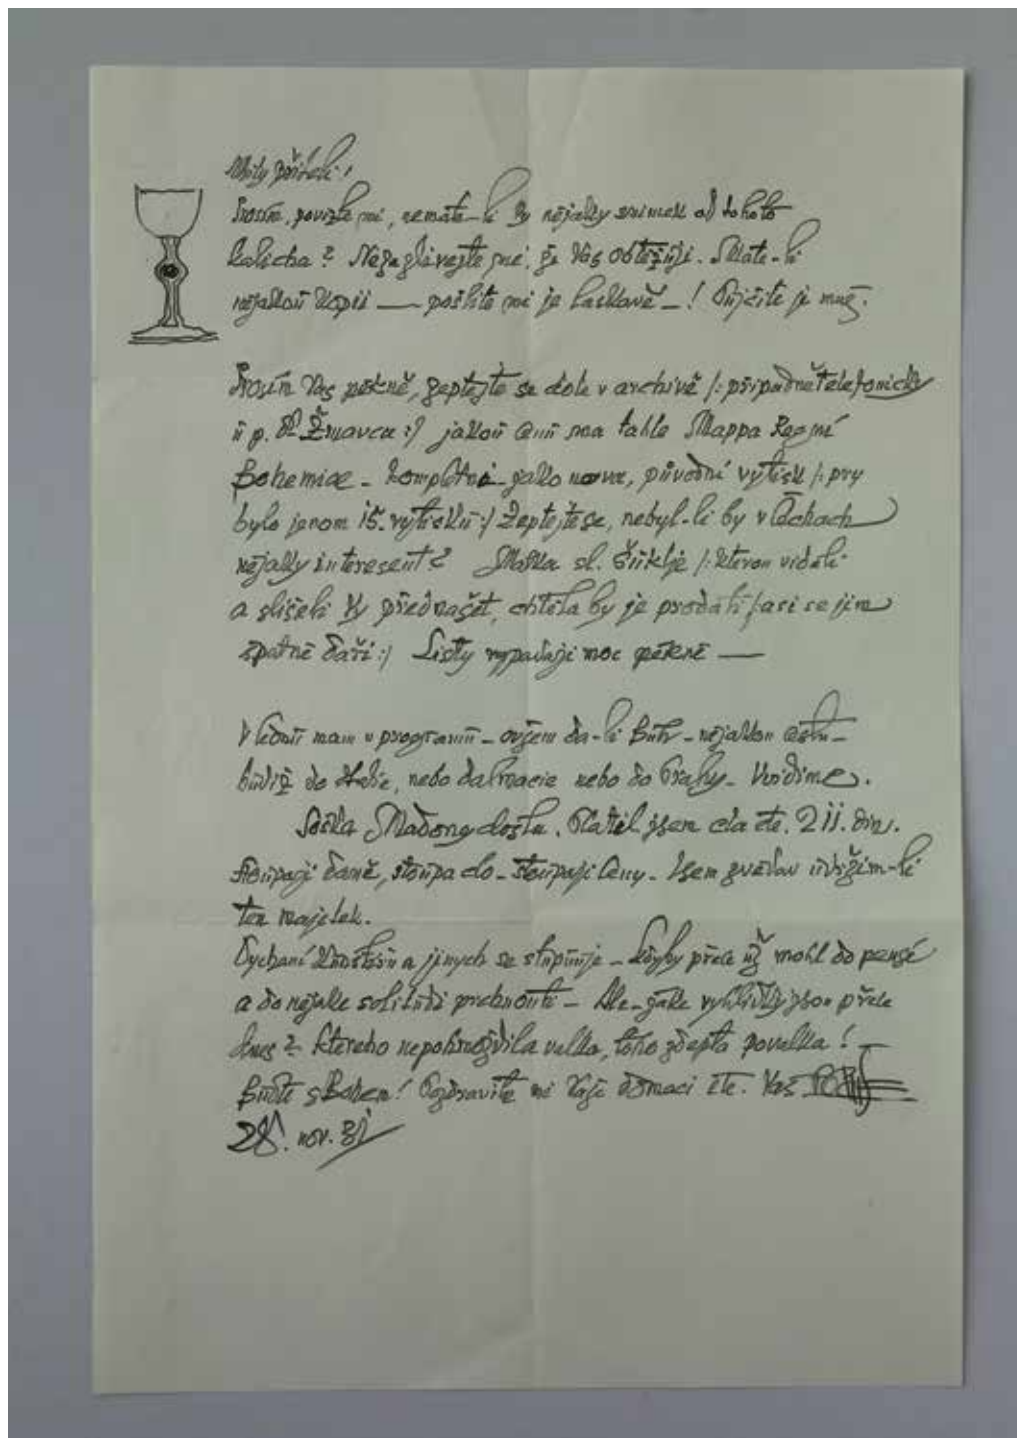 Milý příteli!
Prosím, povězte mi, nemáte-li Vy nějaký snimek od tohoto
kalicha? Nezazlivejte mi, že Vás obtěžuji. Máte-li
nějakou kopii — pošlite mi je laskavě —! Pujčite je mně.
Prosím Vás pěkně, zeptejte se dole v archivě /: připadně telefonicky
u p. Dr Žmavca :/ jakou cenu ma tahle Mappa Regni
Bohemiae - kompletní jako nova, původní vytisk /: pry
bylo jenom 15. vytisků :/ Zeptejte se, nebyl-li by v Čechach
nějaky interesent? Matka sl. Šuklje /: kterou viděli
a slišeli Vy přednašet, chtěla by je prodati /: asi se jim
špatně daří :/ Listy vypadaji moc pěkně —
V lednu mam v programu - ovšem da-li Bůh - nějakou cestu -
budiž do Italie, nebo Dalmacie nebo do Prahy - Uvidime.
Soška Madony došla. Platil jsem cla etc. 211. din.
Stoupaji daně, stoupa clo - stoupaji ceny. Jsem zvědav udržim-li
ten majetek.
Dychaní a jinych se stupňuje - kdyby přece už mohl do penzé
a do nějake solitudi prchnouti - Ale - jake vyhlidky jsou přece
dnes? Ktereho nepohmoždila valka, toho zdepta povalka!
Buďte s Bohem! Pozdravite mi Vaši domaci etc. Vaš
28. nov. 31